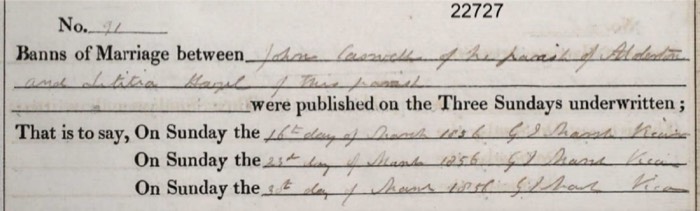 22727
No. 91
Banns of Marriage between John Caswell of the parish of Alderton
and Letitia Hazel of this parish
were published on the Three Sundays underwritten;
That is to say, On Sunday the 16th day of March 1856 G S Marsh Vicar
On Sunday the 23rd day of March 1856 G S Marsh Vicar
On Sunday the day of March 1856 G S Marsh Vicar